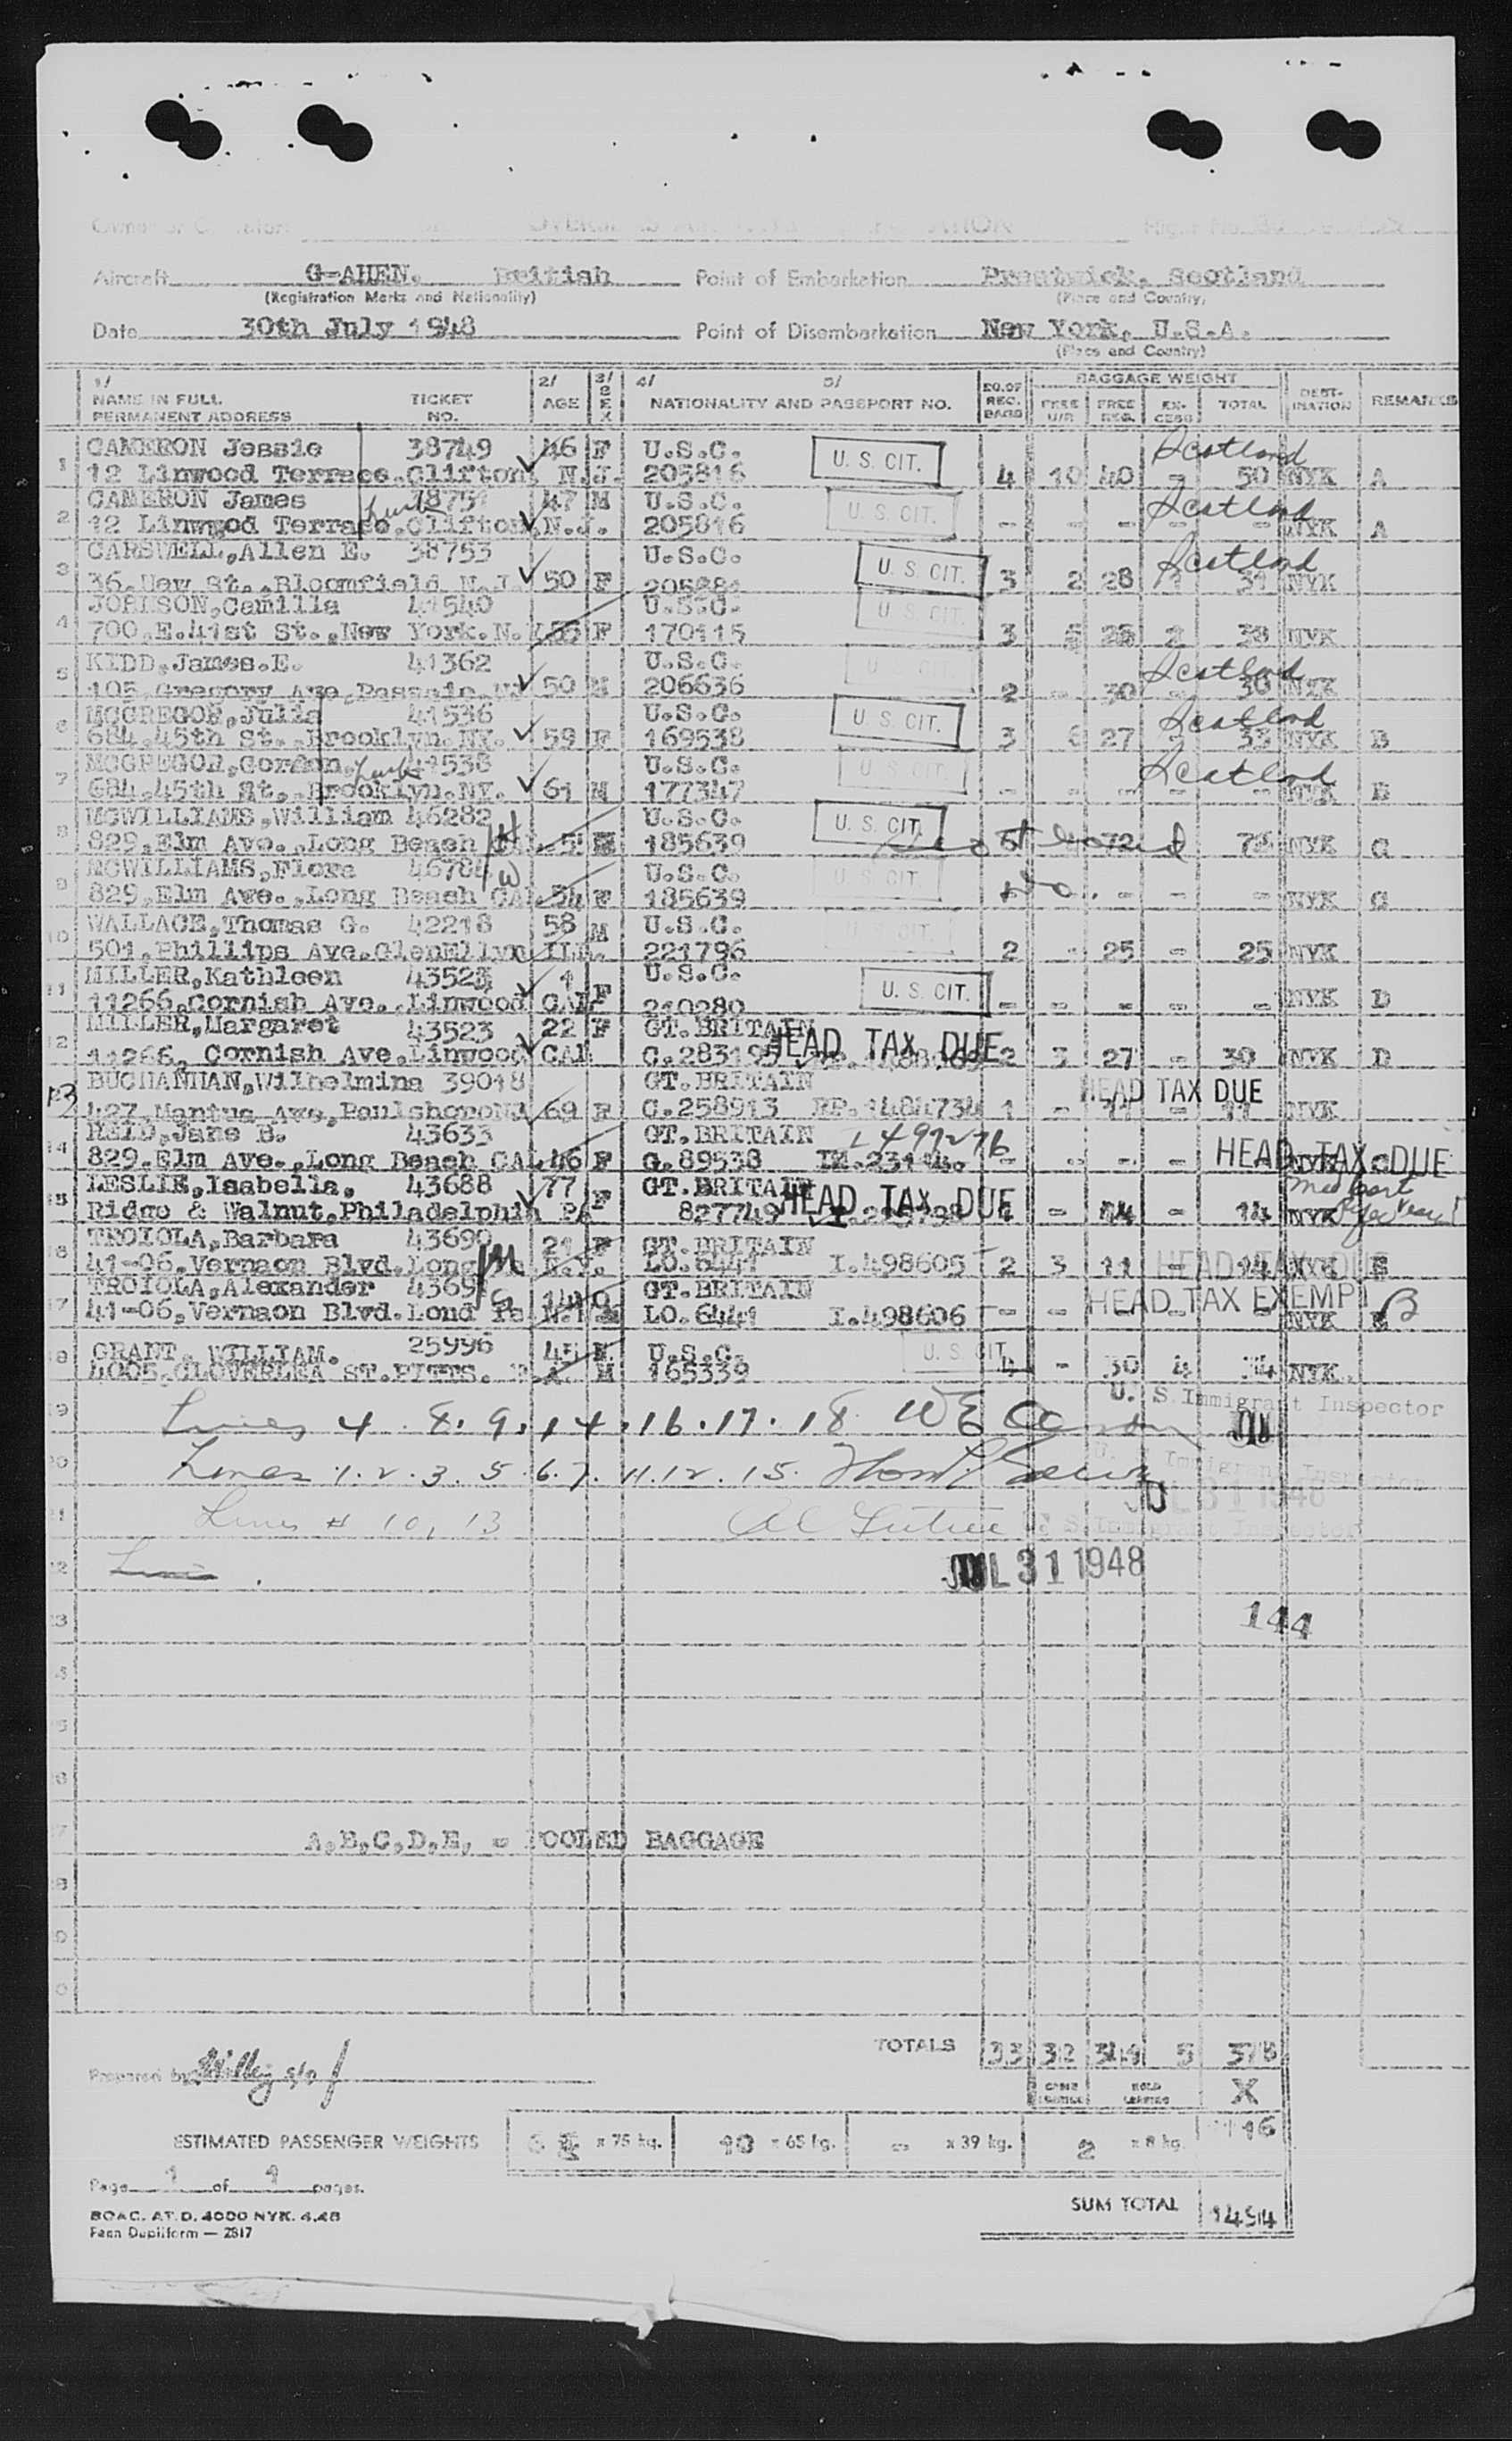 Aircraft G-AHEN. British Point of Embarkation Prestwick, Scotland
(Registration Marks and Nationality) (Place and Country)
Date 30th July 1948 Point of Disembarkation New York, U.S.A.
(Place and Country)
1/ 2/ 3/ 4/ 5/ BAGGAGE WEIGHT
NAME IN FULL TICKET AGE SEX NATIONALITY AND PASSPORT NO. NO. OF REC. BAGS FREE FREE REG. EX-CESS TOTAL DEST-INATION REMARKS
PERMANENT ADDRESS NO.
1 CAMERON Jessie 38749 46 F U.S.C. U. S. CIT. Scotland
12 Linwood Terrace.Clifton N.J. 205816 4 10 40 - 50 NYK A
2 CAMERON James 38751 47 M U.S.C. U. S. CIT. Scotland
12 Linwood Terrace.Clifton N.J. 205816 - - - - - NYK A
3 CARSWELL,Allen E. 38753 U.S.C. U. S. CIT. Scotland
36.New St..Bloomfield N.J. 50 F 3 2 28 31 NYK
4 Camilla 41540 U.S.C. U. S. CIT.
700.E.41st St.,New York.N. F 170115 3 NYK
5 KIDD,James.E. 41362 U.S.C. Scotland
105.Gregory Ave.Passaic.NJ 50 M 206636 2 - 30 - 30 NYK
6 MCGREGOR,Julia 41536 U.S.C. U. S. CIT. Scotland
684.45th St..Brooklyn.NY. 59 F 169538 3 6 27 - 33 NYK B
7 MCGREGOR,Gordon. 41538 U.S.C. U. S. CIT. Scotland
684.45th St..Brooklyn.NY. 61 M 177347 - - - - - NYK B
8 MCWILLIAMS,William 46282 U.S.C. U. S. CIT.
829.Elm Ave.,Long Beach H 185639 72 NYK C
9 MCWILLIAMS,Flora W U.S.C. U. S. CIT.
829.Elm Ave.,Long Beach CAL 54 F 185639 - - - NYK C
10 WALLACE,Thomas G. 42218 58 M U.S.C. U. S. CIT.
501.Phillips Ave.GlenEllyn ILL. 221796 2 - 25 - 25 NYK
11 MILLER,Kathleen 43523 1 F U.S.C. U. S. CIT.
11266.Cornish Ave..Linwood CAL 210280 - - - - - NYK D
12 MILLER,Margaret 43523 22 F GT.BRITAIN HEAD TAX DUE
11266. Cornish Ave.Linwood CAL C.283195 2 3 27 - 30 NYK D
13 BUCHANNAN,Wilhelmina 39018 GT.BRITAIN HEAD TAX DUE
427.Mantua Ave.PaulsboroNJ 69 F C.258913 RP.1484734 1 - 11 - 11 NYK
14 REID,Jane B. 43633 GT.BRITAIN
829.Elm Ave.,Long Beach CAL 46 F G.89538 - - - - HEAD TAX DUE
15 LESLIE,Isabella. 43688 77 F GT.BRITAIN HEAD TAX DUE
Ridge & Walnut.Philadelphia PA 827749 - 14 - 14 NYK
16 TROIOLA,Barbara 43690 21 F GT.BRITAIN
41-06.Vernaon Blvd.Long Is N.Y. LO.6441 I.498605 2 3 11 - 14 HEAD TAX DUE E
17 TROIOLA,Alexander GT.BRITAIN HEAD TAX EXEMPT
41-06,Vernaon Blvd.Lond Is N.Y M LO.6441 I.498606 - - NYK E
18 GRANT. WILLIAM. 25996 U.S.C. U. S. CIT.
4005.CLOVERLEA ST.PITTS. M 165339 - 30 4 34 NYK.
Lines 4. 8. 9. 14. 16. 17. 18 U. S. Immigrant Inspector
Lines 1. 2. 3. 5. 6. 7. 11. 12. 15. Immigrant Inspector
JUL 31 1948
Lines # 10, 13 U. S. Immigrant Inspector
JUL 31 1948
144
A,B,C,D,E, = POOLED BAGGAGE
TOTALS 33 32 5
Prepared by
X
ESTIMATED PASSENGER WEIGHTS x 75 kg. 10 x 65 kg. - x 39 kg. 2 x 8 kg.
Page 1 of 1 pages.
SUM TOTAL
BOAC. AT. D. 4000 NYK. 4.48
Penn Dupliform — 2817